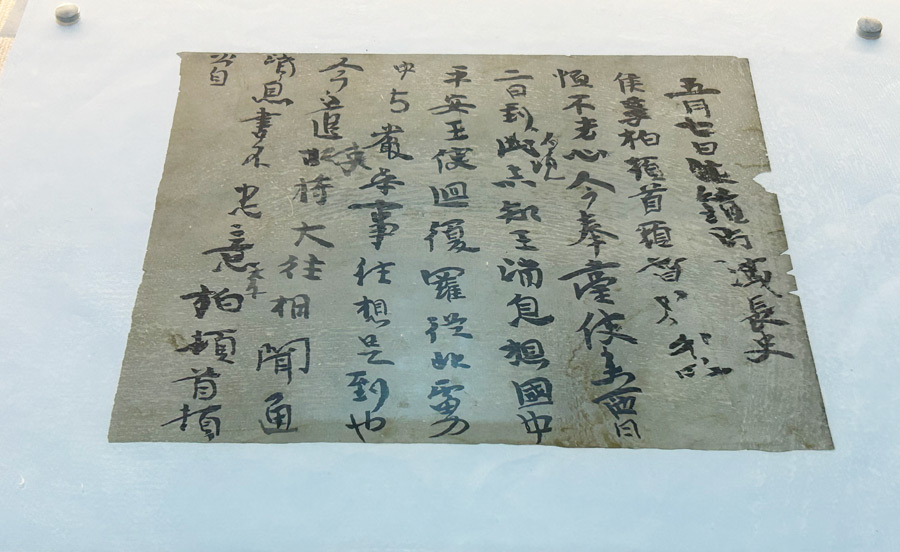 五月七日 長史
侯李柏頓首頓首
恒不去心今奉臺使来西月
二日到此未知王消息想國中
平安王使迴復羅從北虜
中与嚴參事往想是到也
今遣使符大往相聞通
消息書不悉意李柏頓首頓
首